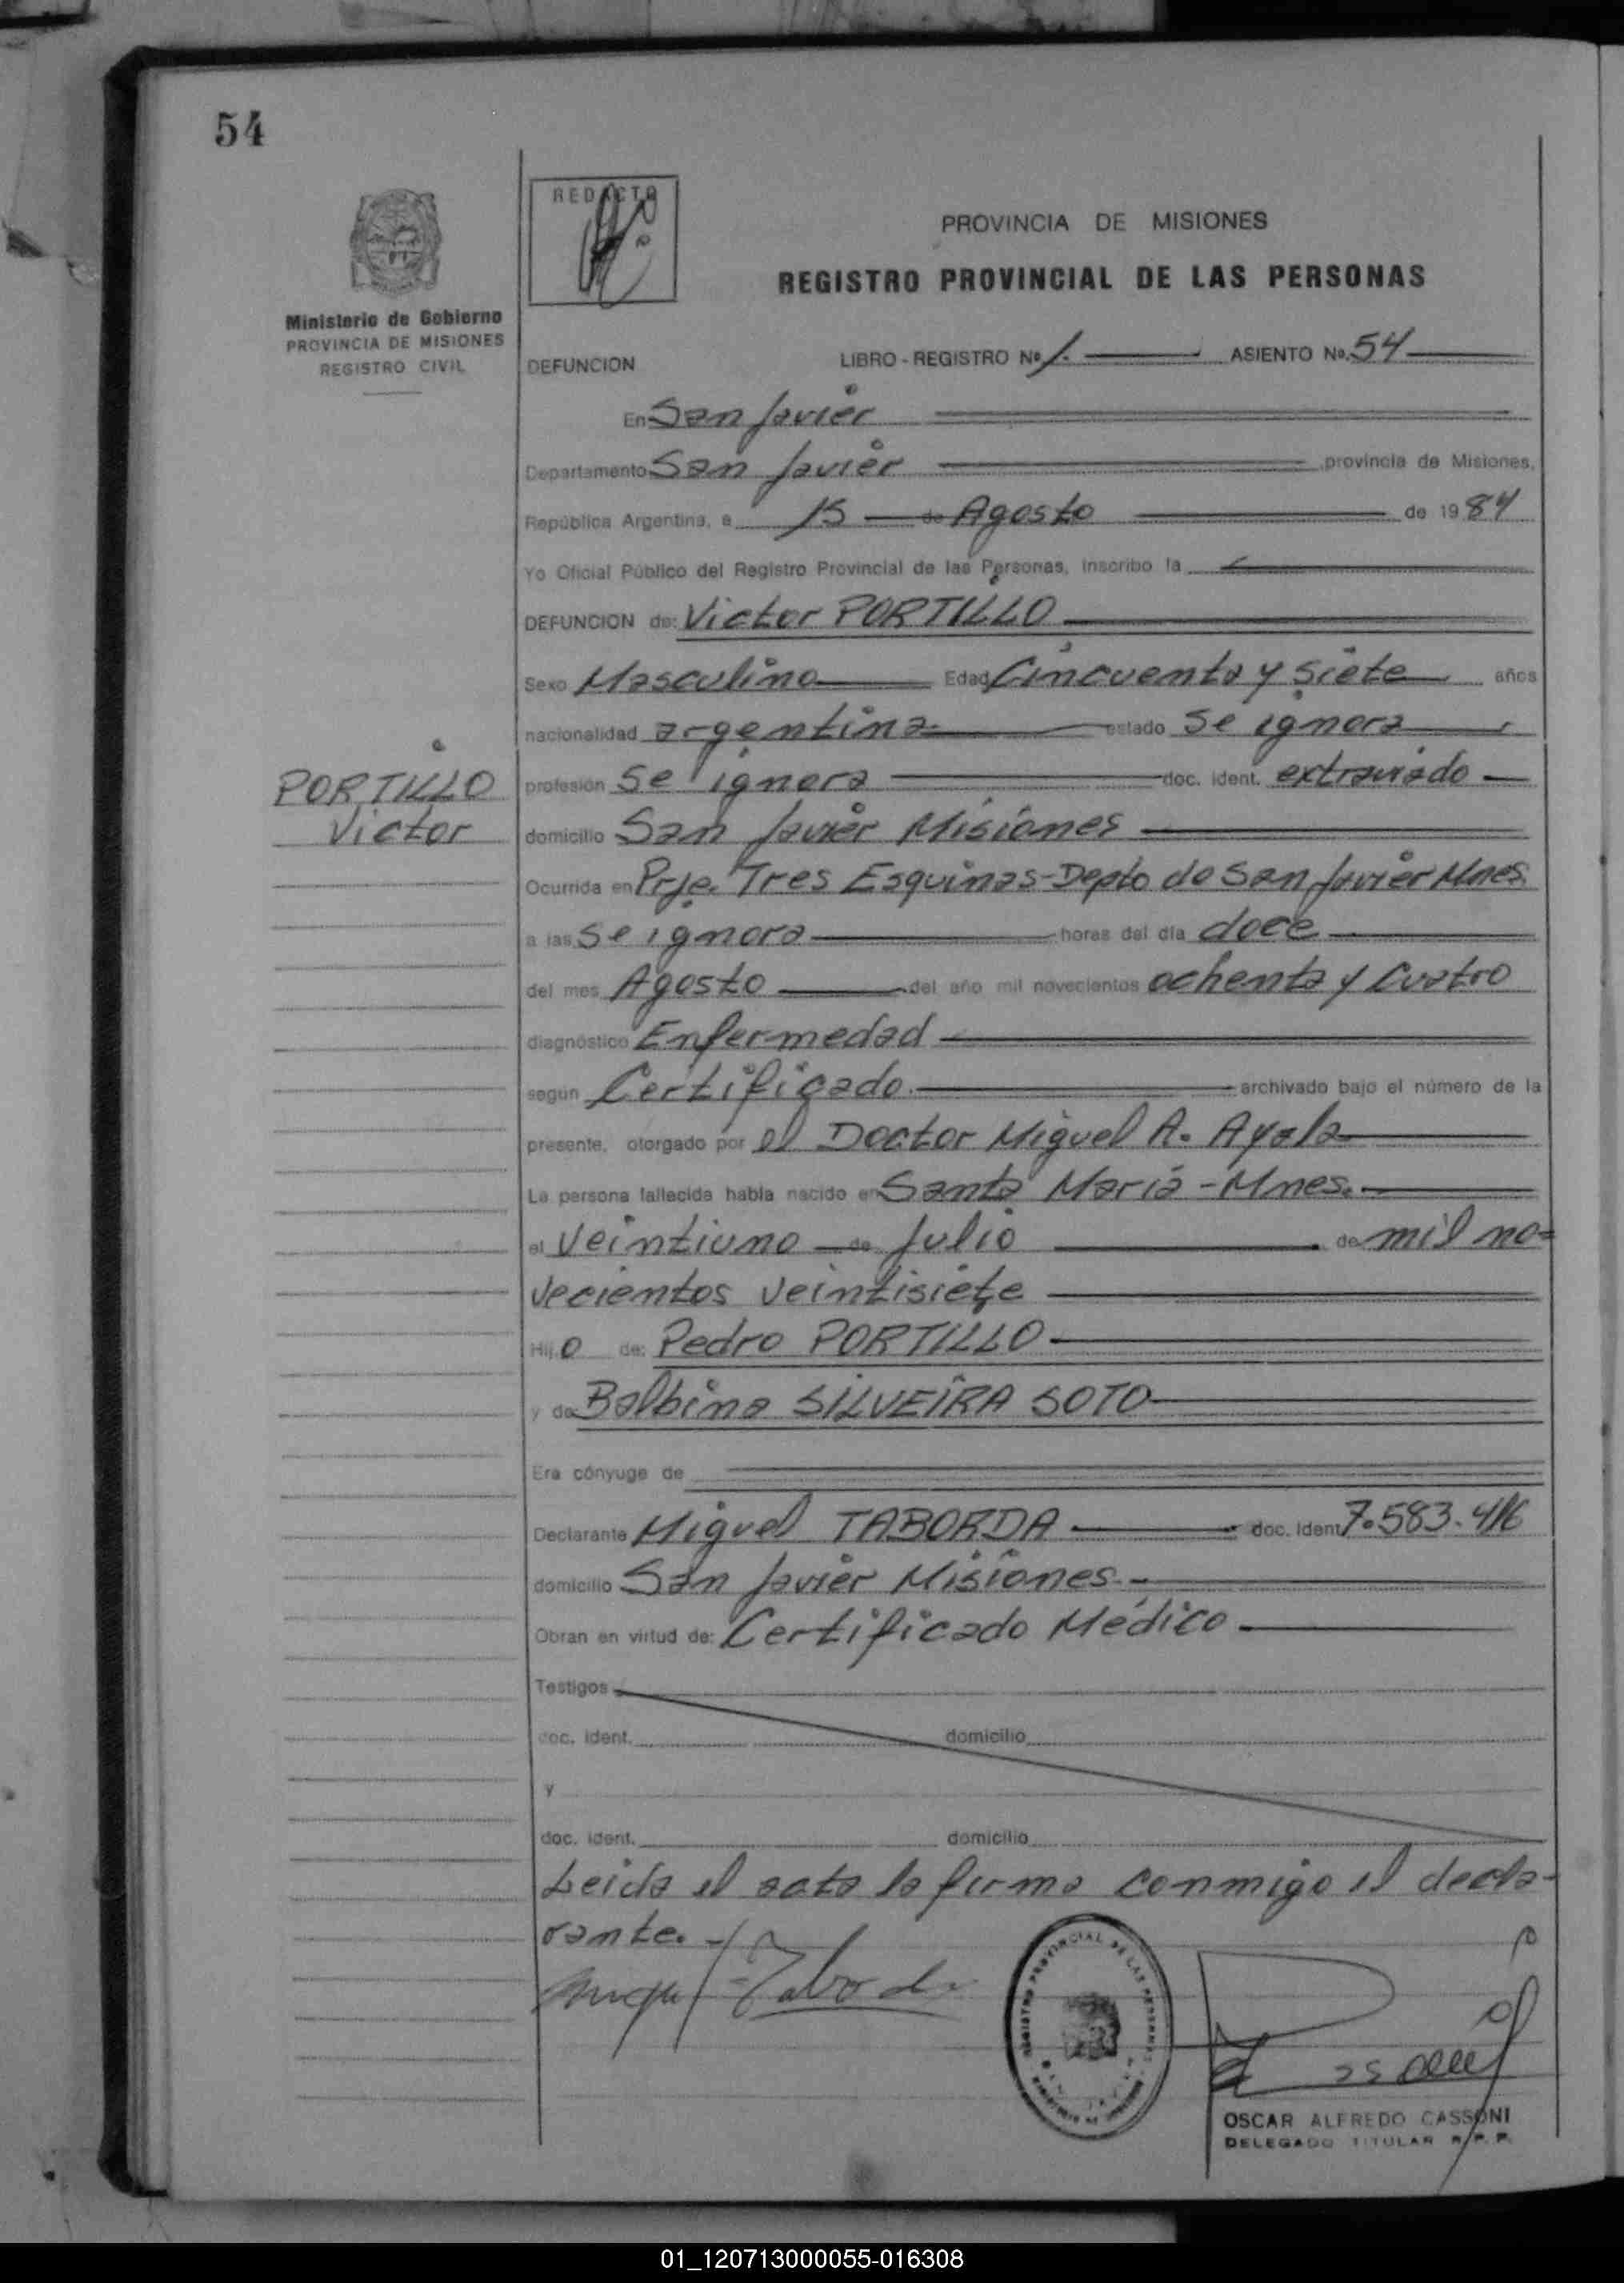 54
REDACTO
PROVINCIA DE MISIONES
REGISTRO PROVINCIAL DE LAS PERSONAS
Ministerio de Gobierno
PROVINCIA DE MISIONES
REGISTRO CIVIL
DEFUNCION LIBRO - REGISTRO Nº 1. ASIENTO No. 54
En San Javier
Departamento San Javier provincia de Misiones,
República Argentina, a 15 de Agosto de 1984
Yo Oficial Público del Registro Provincial de las Personas, inscribo la
DEFUNCION de: Victor PORTILLO
Sexo Masculino Edad Cincuenta y siete años
nacionalidad argentina estado se ignora
PORTILLO
Victor
profesión se ignora doc. ident. extraviado
domicilio San Javier Misiones
Ocurrida en Prje. Tres Esquinas-Depto de San Javier Mnes.
a las se ignora horas del día doce
del mes Agosto del año mil novecientos ochenta y Cuatro
diagnóstico Enfermedad
según Certificado. archivado bajo el número de la
presente, otorgado por el Doctor Miguel A. Ayala
La persona fallecida había nacido en Santa María - Mnes.
el Veintiuno de Julio de mil no=
vecientos veintisiete
Hijo de: Pedro PORTILLO
y de Balbina SILVEIRA SOTO
Era cónyuge de
Declarante Miguel TABORDA doc. Ident 7.583.416
domicilio San Javier Misiones.-
Obran en virtud de: Certificado Médico
Testigos
doc. ident. domicilio
y
doc. ident. domicilio
Leida el acta la firma conmigo el decla-
rante.-
Miguel Taborda
REGISTRO PROVINCIAL DE LAS PERSONAS
OSCAR ALFREDO CASSONI
DELEGADO TITULAR R. P. P.
01_120713000055-016308